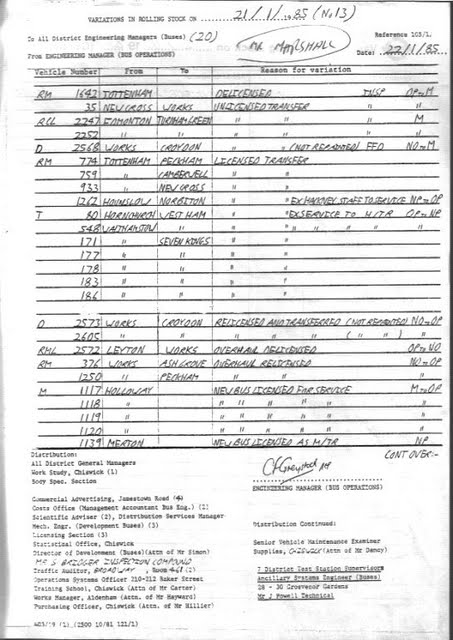 VARIATIONS IN ROLLING STOCK ON 21/1/1985 (No.13)
To All District Engineering Managers (Buses) (20) Mr MARSHALL Reference 103/1.
From ENGINEERING MANAGER (BUS OPERATIONS) Date: 22/1/85
Vehicle Number From To Reason for variation
RM 1642 TOTTENHAM DELICENSED INSP OP to M
35 NEW CROSS WORKS UNLICENSED TRANSFER " "
RCL 2247 EDMONTON TURNHAM GREEN " " M
2252 " " " " "
D 2568 WORKS CROYDON " " (NOT REPAINTED) FFO NO to M
RM 774 TOTTENHAM PECKHAM LICENSED TRANSFER
759 " CAMBERWELL " "
933 " NEW CROSS " "
1262 HOUNSLOW NORBITON " " EX HACKNEY STAFF TO SERVICE NP to OP
T 80 HORNCHURCH WEST HAM " " EX SERVICE TO M/TR OP to NP
548 WALTHAMSTOW " " " " " " "
171 " SEVEN KINGS " "
177 " " " "
178 " " " "
183 " " " "
186 " " " "
D 2573 WORKS CROYDON RELICENSED AND TRANSFERRED (NOT REPAINTED) NO to OP
2605 " " " " " ( " " ) "
RML 2572 LEYTON WORKS OVERHAUL DELICENSED OP to NO
RM 376 WORKS ASH GROVE OVERHAUL RELICENSED NO to OP
1250 " PECKHAM " " "
M 1117 HOLLOWAY NEW BUS LICENSED FOR SERVICE M to OP
1118 " " " " " " "
1119 " " " " " " "
1120 " " " " " " "
1139 MERTON NEW BUS LICENSED AS M/TR NP
CONT OVER:-
Distribution:
All District General Managers
Work Study, Chiswick (1)
Body Spec. Section
ENGINEERING MANAGER (BUS OPERATIONS)
Commercial Advertising, Jamestown Road (4)
Costs Office (Management Accountant Bus Eng.) (2)
Scientific Adviser (2), Distribution Services Manager
Mech. Engr. (Development Buses) (3)
Licensing Section (3)
Statistical Office, Chiswick
Director of Development (Buses)(Attn of Mr Simon)
INSPECTION COMPOUND
Traffic Auditor, BROADWAY, Room
Operations Systems Officer 210-212 Baker Street
Training School, Chiswick (Attn of Mr Carter)
Works Manager, Aldenham (Attn of Mr Heyward)
Purchasing Officer, Chiswick (Attn. of Mr Hillier)
Distribution Continued:
Senior Vehicle Maintenance Examiner
Supplies, CHISWICK (Attn of Mr Dency)
7 District Test Station Supervisors
Ancillary Systems Engineer (Buses)
28 - 30 Grosvenor Gardens
Mr J Powell Technical
403/79 (1) (2500 10/81 121/1)